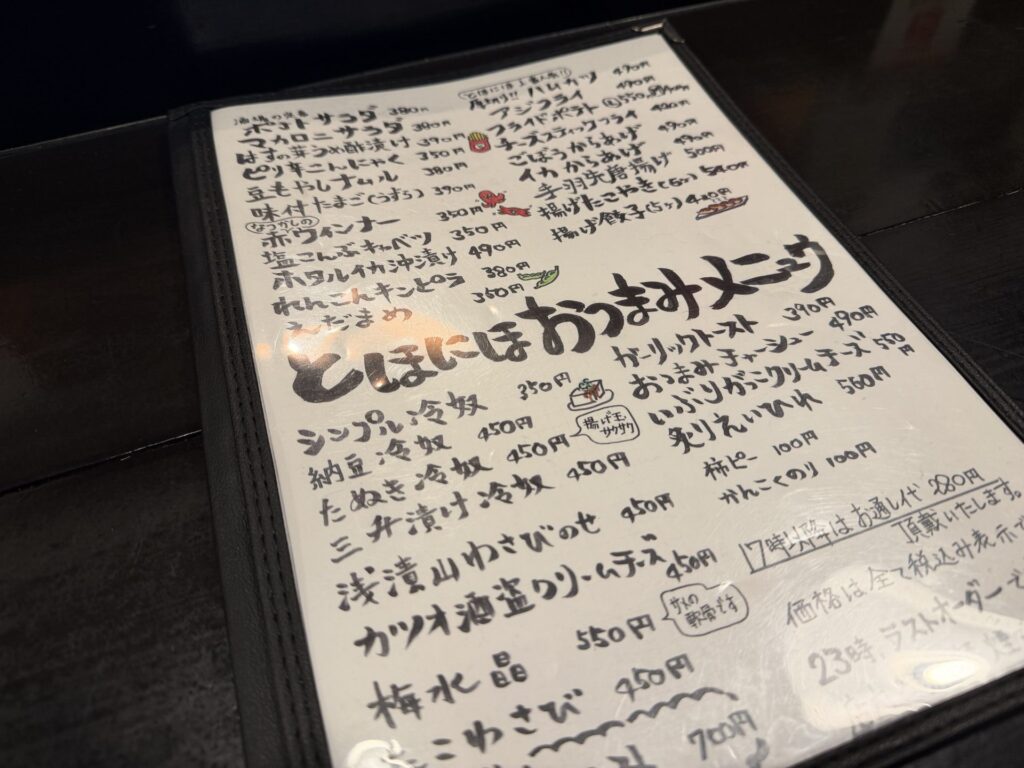 酒場の定番
ポテトサラダ 380円
マカロニサラダ 390円
はすの芽うめ酢漬け 390円
ピリ辛こんにゃく 350円
豆もやしナムル 380円
味付たまご(うずら) 390円
なつかしの
赤ウィンナー 350円
塩こんぶキャベツ 350円
ホタルイカ沖漬け 490円
れんこんキンピラ 380円
えだまめ 360円
厚切り!! ハムカツ 490円
アジフライ 490円
フライドポテト
チーズスティックフライ 490円
ごぼうからあげ 490円
イカからあげ 490円
手羽先唐揚げ 500円
揚げたこやき(6ヶ) 540円
揚げ餃子(5ヶ) 440円
とほにほおつまみメニュウ
シンプル冷奴 350円
納豆冷奴 450円
たぬき冷奴 450円
揚げ玉
サクサク
三升漬け冷奴 450円
浅漬山わさびのせ 450円
カツオ酒盗クリームチーズ 450円
梅水晶 550円
サメの
軟骨です
こわさび 450円
700円
ガーリックトースト 390円
おつまみチャーシュー 490円
いぶりがっこクリームチーズ 550円
炙りえいひれ 560円
柿ピー 100円
かんこくのり 100円
17時以降はお通し代 280円
頂戴いたします。
価格は全て税込み表示で
23時ラストオーダーで